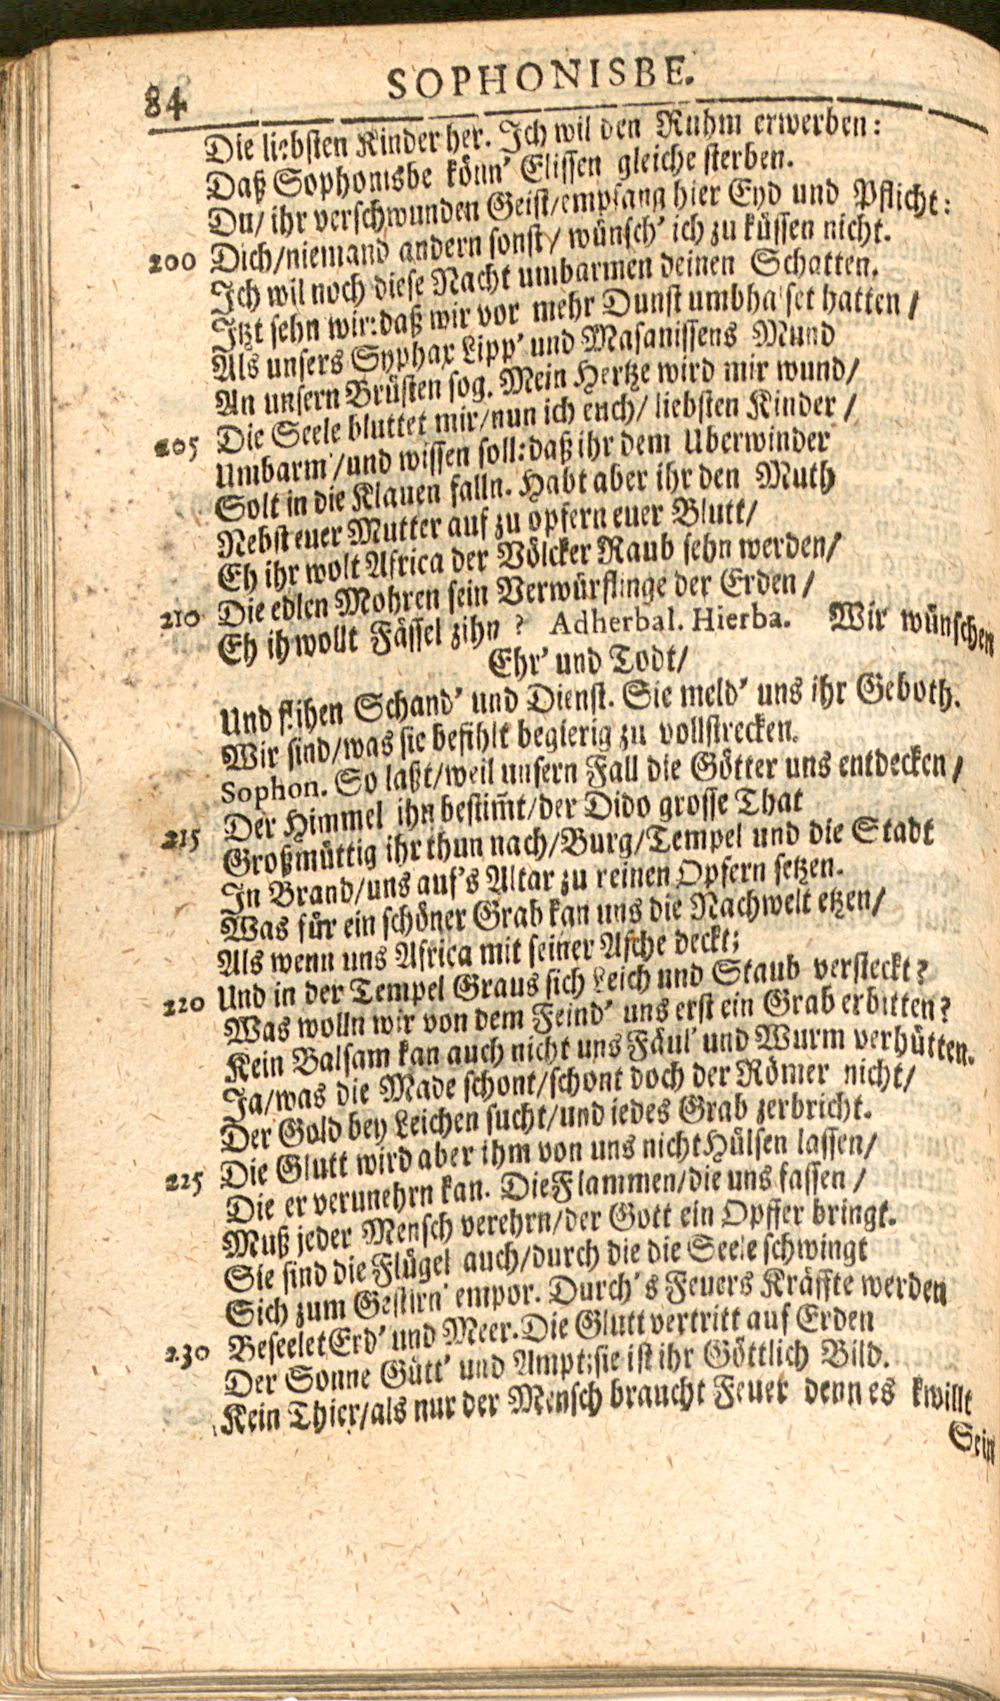 84 SOPHONISBE.
Die liebsten Kinder her. Ich wil den Ruhm erwerben:
Daß Sophonisbe könn' Elissen gleiche sterben.
Du/ ihr verschwunden Geist/empfang hier Eyd und Pflicht:
200 Dich/niemand andern sonst/ wünsch' ich zu küssen nicht.
Ich wil noch diese Nacht umbarmen deinen Schatten.
Itzt sehn wir:daß wir vor mehr Dunst umbhalset hatten /
Als unsers Syphax Lipp' und Masanissens Mund
An unsern Brüsten sog. Mein Hertze wird mir wund/
205 Die Seele bluttet mir/nun ich euch/ liebsten Kinder /
Umbarm'/und wissen soll:daß ihr dem Uberwinder
Solt in die Klauen falln. Habt aber ihr den Muth
Nebst euer Mutter auf zu opfern euer Blutt/
Eh ihr wolt Africa der Völcker Raub sehn werden/
210 Die edlen Mohren sein Verwürflinge der Erden /
Eh ih wollt Fässel zihn ? Adherbal. Hierba. Wir wünschen
Ehr' und Todt/
Und flihen Schand' und Dienst. Sie meld' uns ihr Geboth.
Wir sind/was sie befihlt begierig zu vollstrecken.
Sophon. So laßt/weil unsern Fall die Götter uns entdecken /
215 Der Himmel ihn bestim̃t/der Dido grosse That
Großmüttig ihr thun nach/Burg/Tempel und die Stadt
In Brand/uns auf's Altar zu reinen Opfern setzen.
Was für ein schöner Grab kan uns die Nachwelt etzen/
Als wenn uns Africa mit seiner Asche deckt;
220 Und in der Tempel Graus sich Leich und Staub versteckt?
Was wolln wir von dem Feind' uns erst ein Grab erbitten?
Kein Balsam kan auch nicht uns Fäul' und Wurm verhütten.
Ja/was die Made schont/schont doch der Römer nicht/
Der Gold bey Leichen sucht/und iedes Grab zerbricht.
225 Die Glutt wird aber ihm von uns nicht Hülsen lassen/
Die er verunehrn kan. Die Flammen/die uns fassen /
Muß jeder Mensch verehrn/der Gott ein Opffer bringt.
Sie sind die Flügel auch/durch die die Seele schwingt
Sich zum Gestirn' empor. Durch's Feuers Kräffte werden
230 Beseelet Erd' und Meer. Die Glutt vertritt auf Erden
Der Sonne Gütt' und Ampt;sie ist ihr Göttlich Bild.
Kein Thier/als nur der Mensch braucht Feuer denn es kwillt
Sein